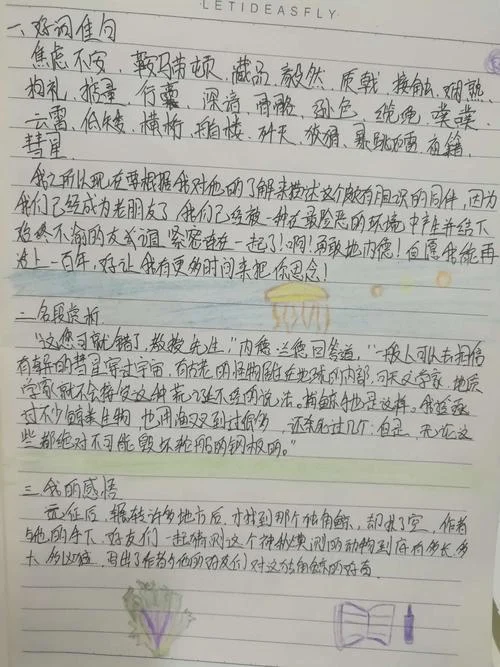 LETIDEASFLY
一、好词佳句
焦虑不安、鞍马劳顿、藏品、毅然、质戟、接触、娴熟、
拘礼、掂量、行囊、深渊、逊色、缆绳、噗噗、
云霄、低矮、横桁、船楼、歼灭、狡猾、暴跳如雷、
彗星
我之所以现在要根据我对他的了解来描述这个颇有胆识的同伴,因为
我们已经成为老朋友了,我们已经被一种在最险恶的环境中产生并结下
始终不渝的友谊紧密连在一起了!啊!勇敢地内德!但愿我能再
活上一百年,好让我有更多时间来把你思念!
二、名段赏析
"这您可就错了,教授先生,"内德·兰德回答道,"一般人可以去相信
有新的彗星穿过宇宙,有古老的怪物居住地球的内部,可天文学家、地质
学家就不会接受这种荒诞不经的说法。捕鲸手也是这样。我追逐
过不少鲸类生物,也用海叉叉到过很多,还杀死过几个;但是,无论这
些都绝对不可能毁坏轮船的钢板的。"
三、我的感悟
远征后,辗转许多地方后,才找到那个独角鲸,却扑了空,作者
与他的手下、好友们一起猜测这个神秘莫测的动物到底有多长、多
大、多凶猛,写出了作者与他的好友们对这独角鲸的好奇。